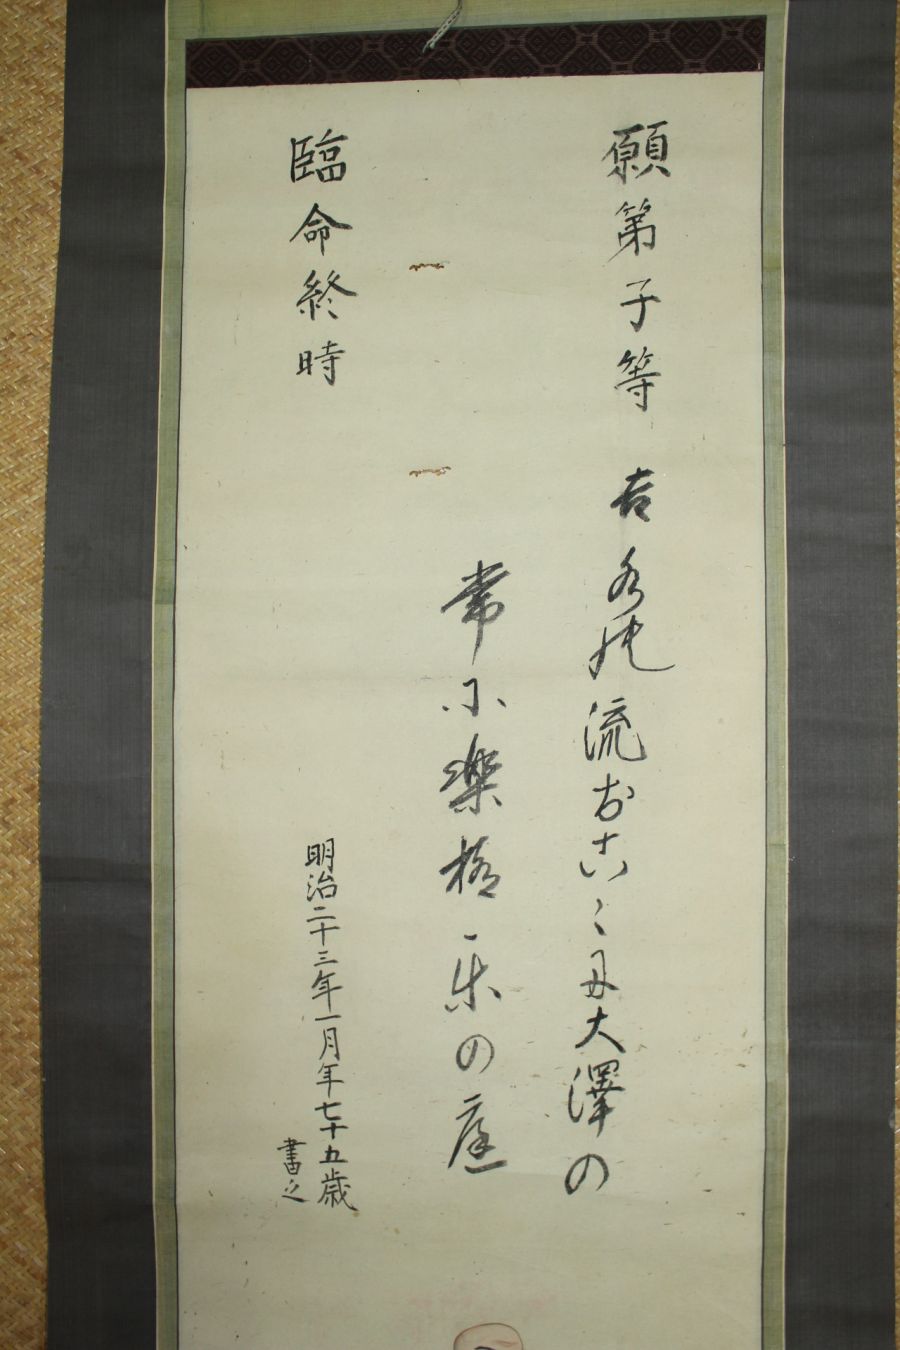 願第子等 吉水の流れこゝ丹大澤の
常小楽
の庭
臨命終時
明治二十三年一月年七十五歳
書之